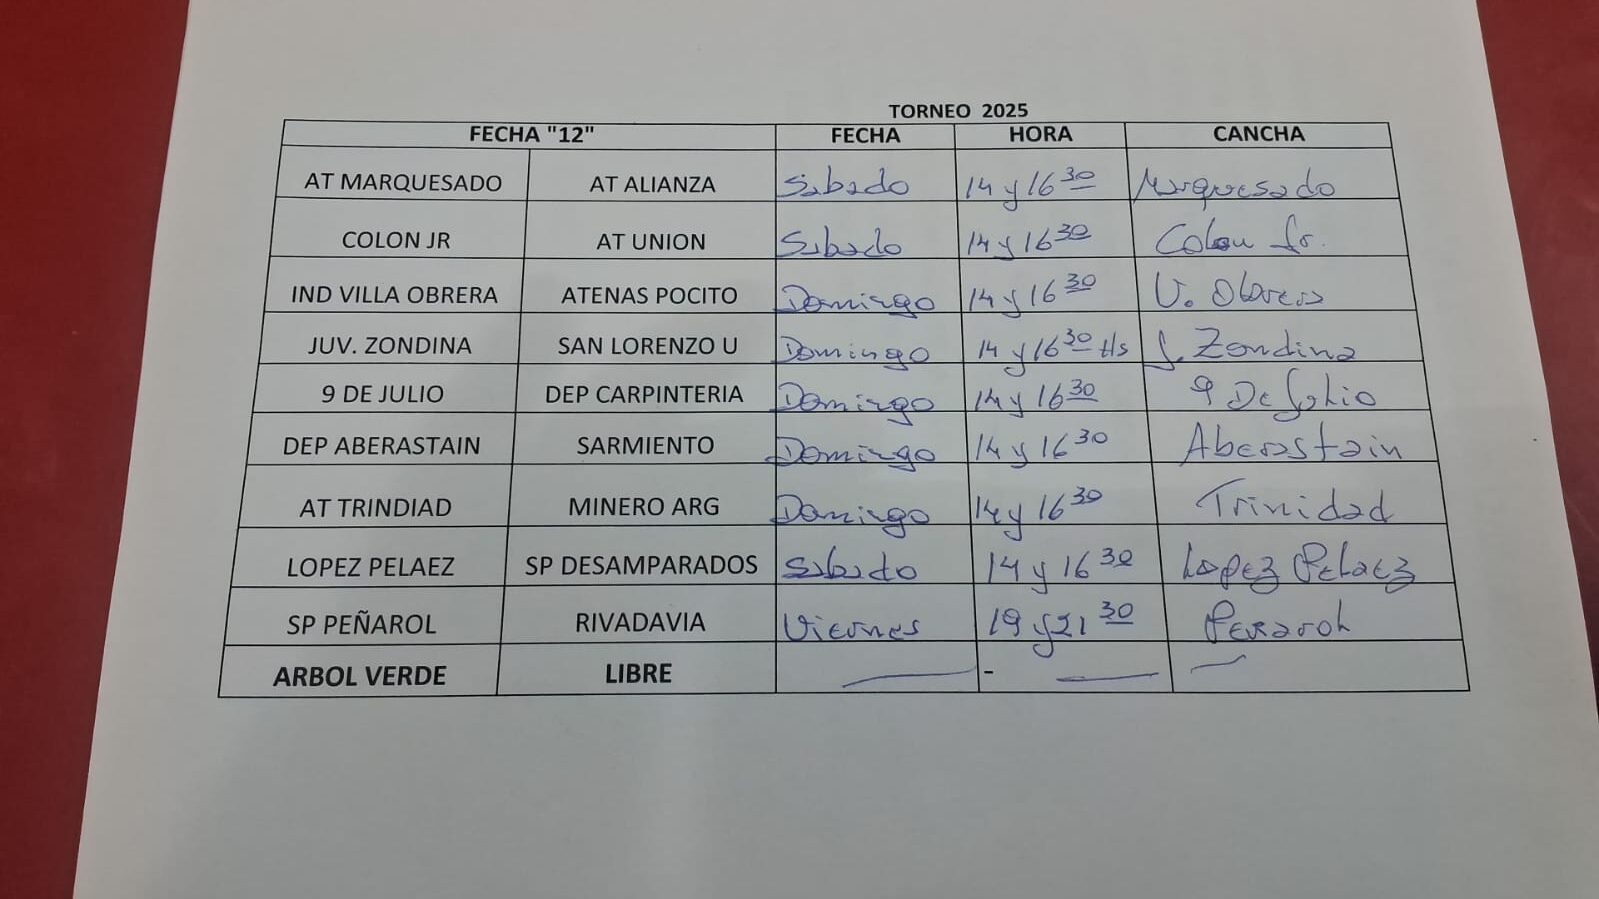 TORNEO 2025
FECHA "12" FECHA HORA CANCHA
AT MARQUESADO AT ALIANZA Sabado 14 y 16 30 Marquesado
COLON JR AT UNION Sabado 14 y 16 30 Colon Jr.
IND VILLA OBRERA ATENAS POCITO Domingo 14 y 16 30 V. Obrera
JUV. ZONDINA SAN LORENZO U Domingo 14 y 16 30 Hs J. Zondina
9 DE JULIO DEP CARPINTERIA Domingo 14 y 16 30 9 De Julio
DEP ABERASTAIN SARMIENTO Domingo 14 y 16 30 Aberastain
AT TRINDIAD MINERO ARG Domingo 14 y 16 30 Trinidad
LOPEZ PELAEZ SP DESAMPARADOS Sabado 14 y 16 30 Lopez Pelaez
SP PEÑAROL RIVADAVIA Viernes 19 y 21 30 Peñarol
ARBOL VERDE LIBRE -